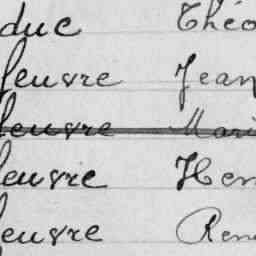 duc Théo
feuvre Jean
feuvre Mari
feuvre Hen
feuvre Ren